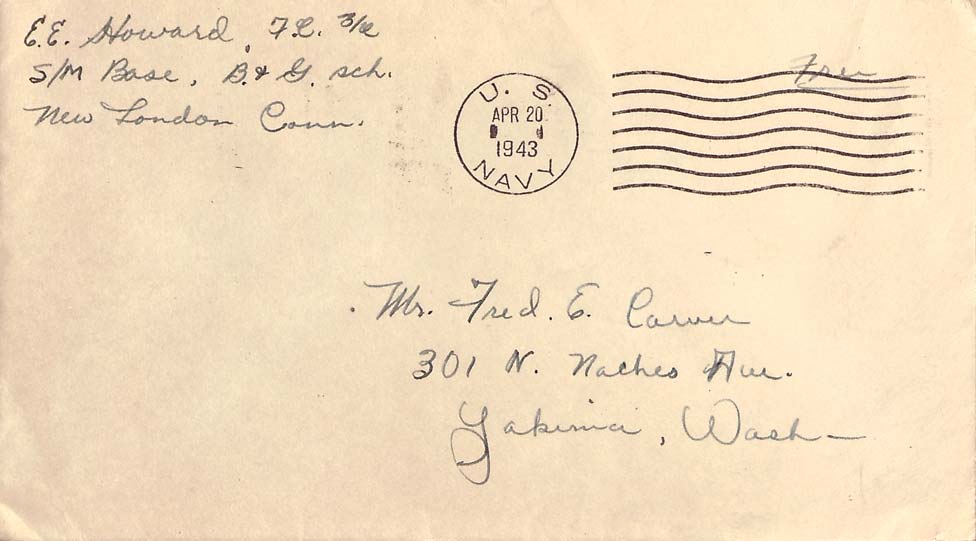 E.E. Howard, F.C. 3/c
S/M Base, B. & G. sch.
New London Conn.
U. S.
APR 20
1943
NAVY
Free
Mr. Fred. E. Carver
301 N. Naches Ave.
Yakima, Wash—